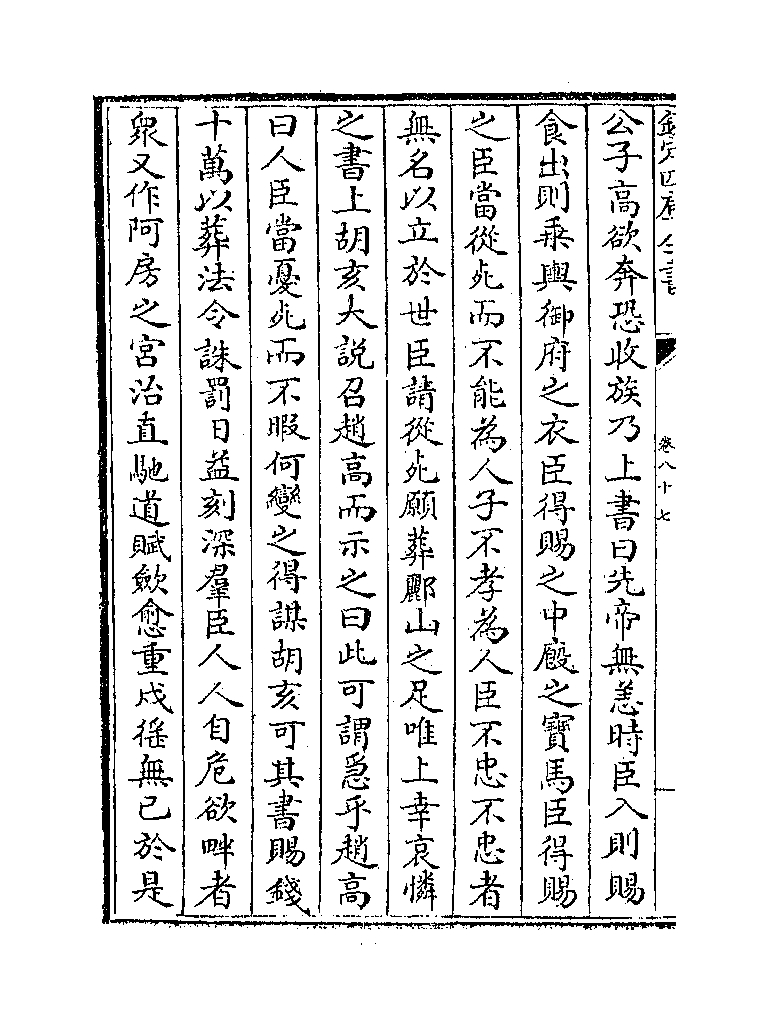 欽定四庫全書
卷八十七
公子高欲奔恐收族乃上書曰先帝無恙時臣入則賜
食出則乗輿御府之衣臣得賜之中廐之寶馬臣得賜
之臣當從死而不能為人子不孝為人臣不忠不忠者
無名以立於世臣請從死願葬酈山之足唯上幸哀憐
之書上胡亥大説召趙高而示之曰此可謂急乎趙高
曰人臣當憂死而不暇何變之得謀胡亥可其書賜錢
十萬以葬法令誅罰日益刻深羣臣人人自危欲畔者
衆又作阿房之宫治直馳道賦歛愈重戍徭無已於是